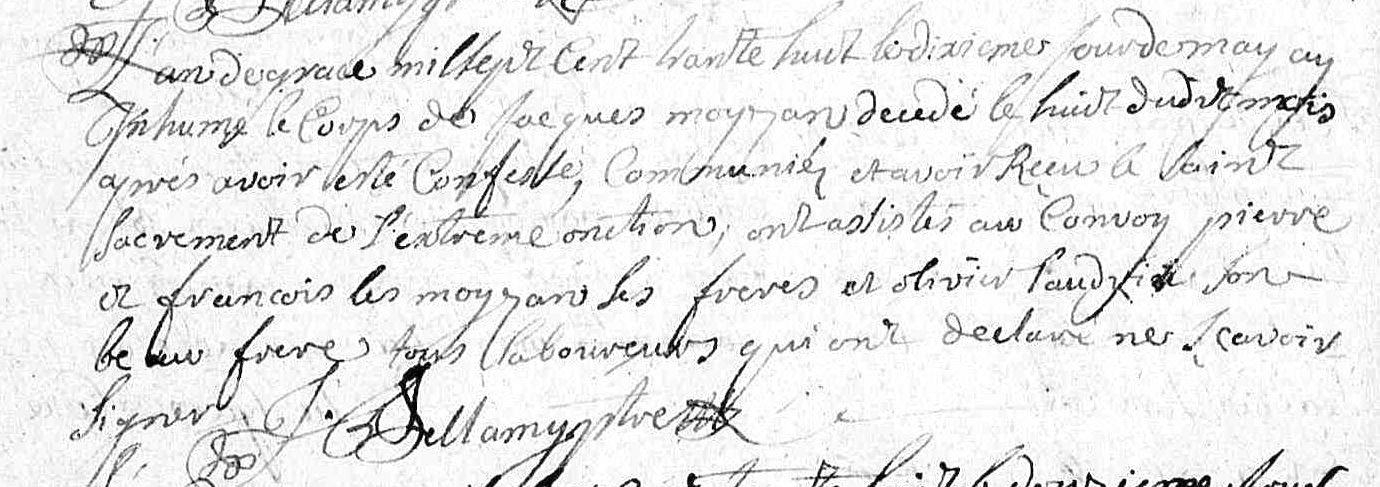 L'an de grace mil sept cent trante huit le dixieme jour de may ay
Inhumé le Corps de Jacques moyzan decedé le huit dudit mois
après avoir esté Confessé, Communiéz et avoir Receu le saint
sacrement de l'extreme onction, ont assistés au Convoy pierre
et francois les moyzan ses freres et olivier son
beau frere tous laboureurs qui ont declaré ne sçavoir
signer